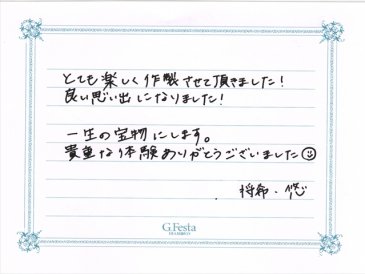 とても楽しく作製させて頂きました!
良い思い出になりました!
一生の宝物にします。
貴重な体験ありがとうございました☺
将希・悠
G.Festa